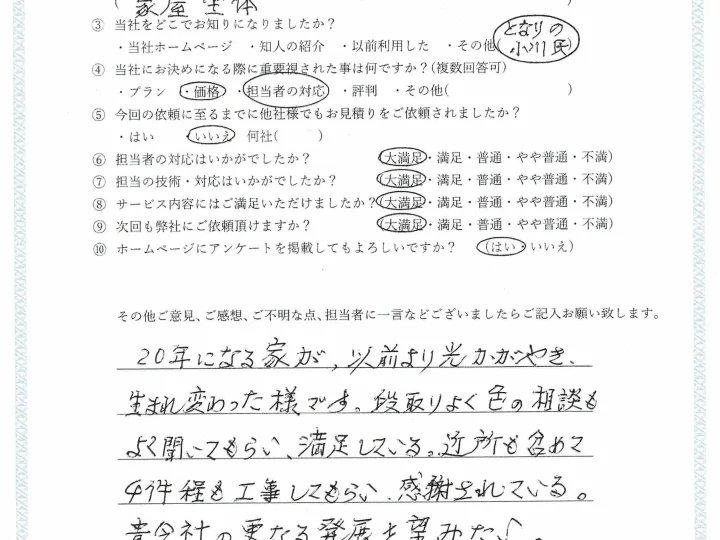 (家屋全体)
③ 当社をどこでお知りになりましたか?
・当社ホームページ ・知人の紹介 ・以前利用した ・その他(となりの小川氏)
④ 当社にお決めになる際に重要視された事は何ですか?(複数回答可)
・プラン ・価格 ・担当者の対応 ・評判 ・その他( )
⑤ 今回の依頼に至るまでに他社様でもお見積りをご依頼されましたか?
・はい ・いいえ 何社( )
⑥ 担当者の対応はいかがでしたか? (大満足・満足・普通・やや普通・不満)
⑦ 担当の技術・対応はいかがでしたか? (大満足・満足・普通・やや普通・不満)
⑧ サービス内容にはご満足いただけましたか? (大満足・満足・普通・やや普通・不満)
⑨ 次回も弊社にご依頼頂けますか? (大満足・満足・普通・やや普通・不満)
⑩ ホームページにアンケートを掲載してもよろしいですか? (はい・いいえ)
その他ご意見、ご感想、ご不明な点、担当者に一言などございましたらご記入お願い致します。
20年になる家が、以前より光かがやき、
生まれ変わった様です。段取りよく色の相談も
よく聞いてもらい、満足している。近所も含めて
4件程も工事してもらい、感謝されている。
貴会社の更なる発展を望みたい。